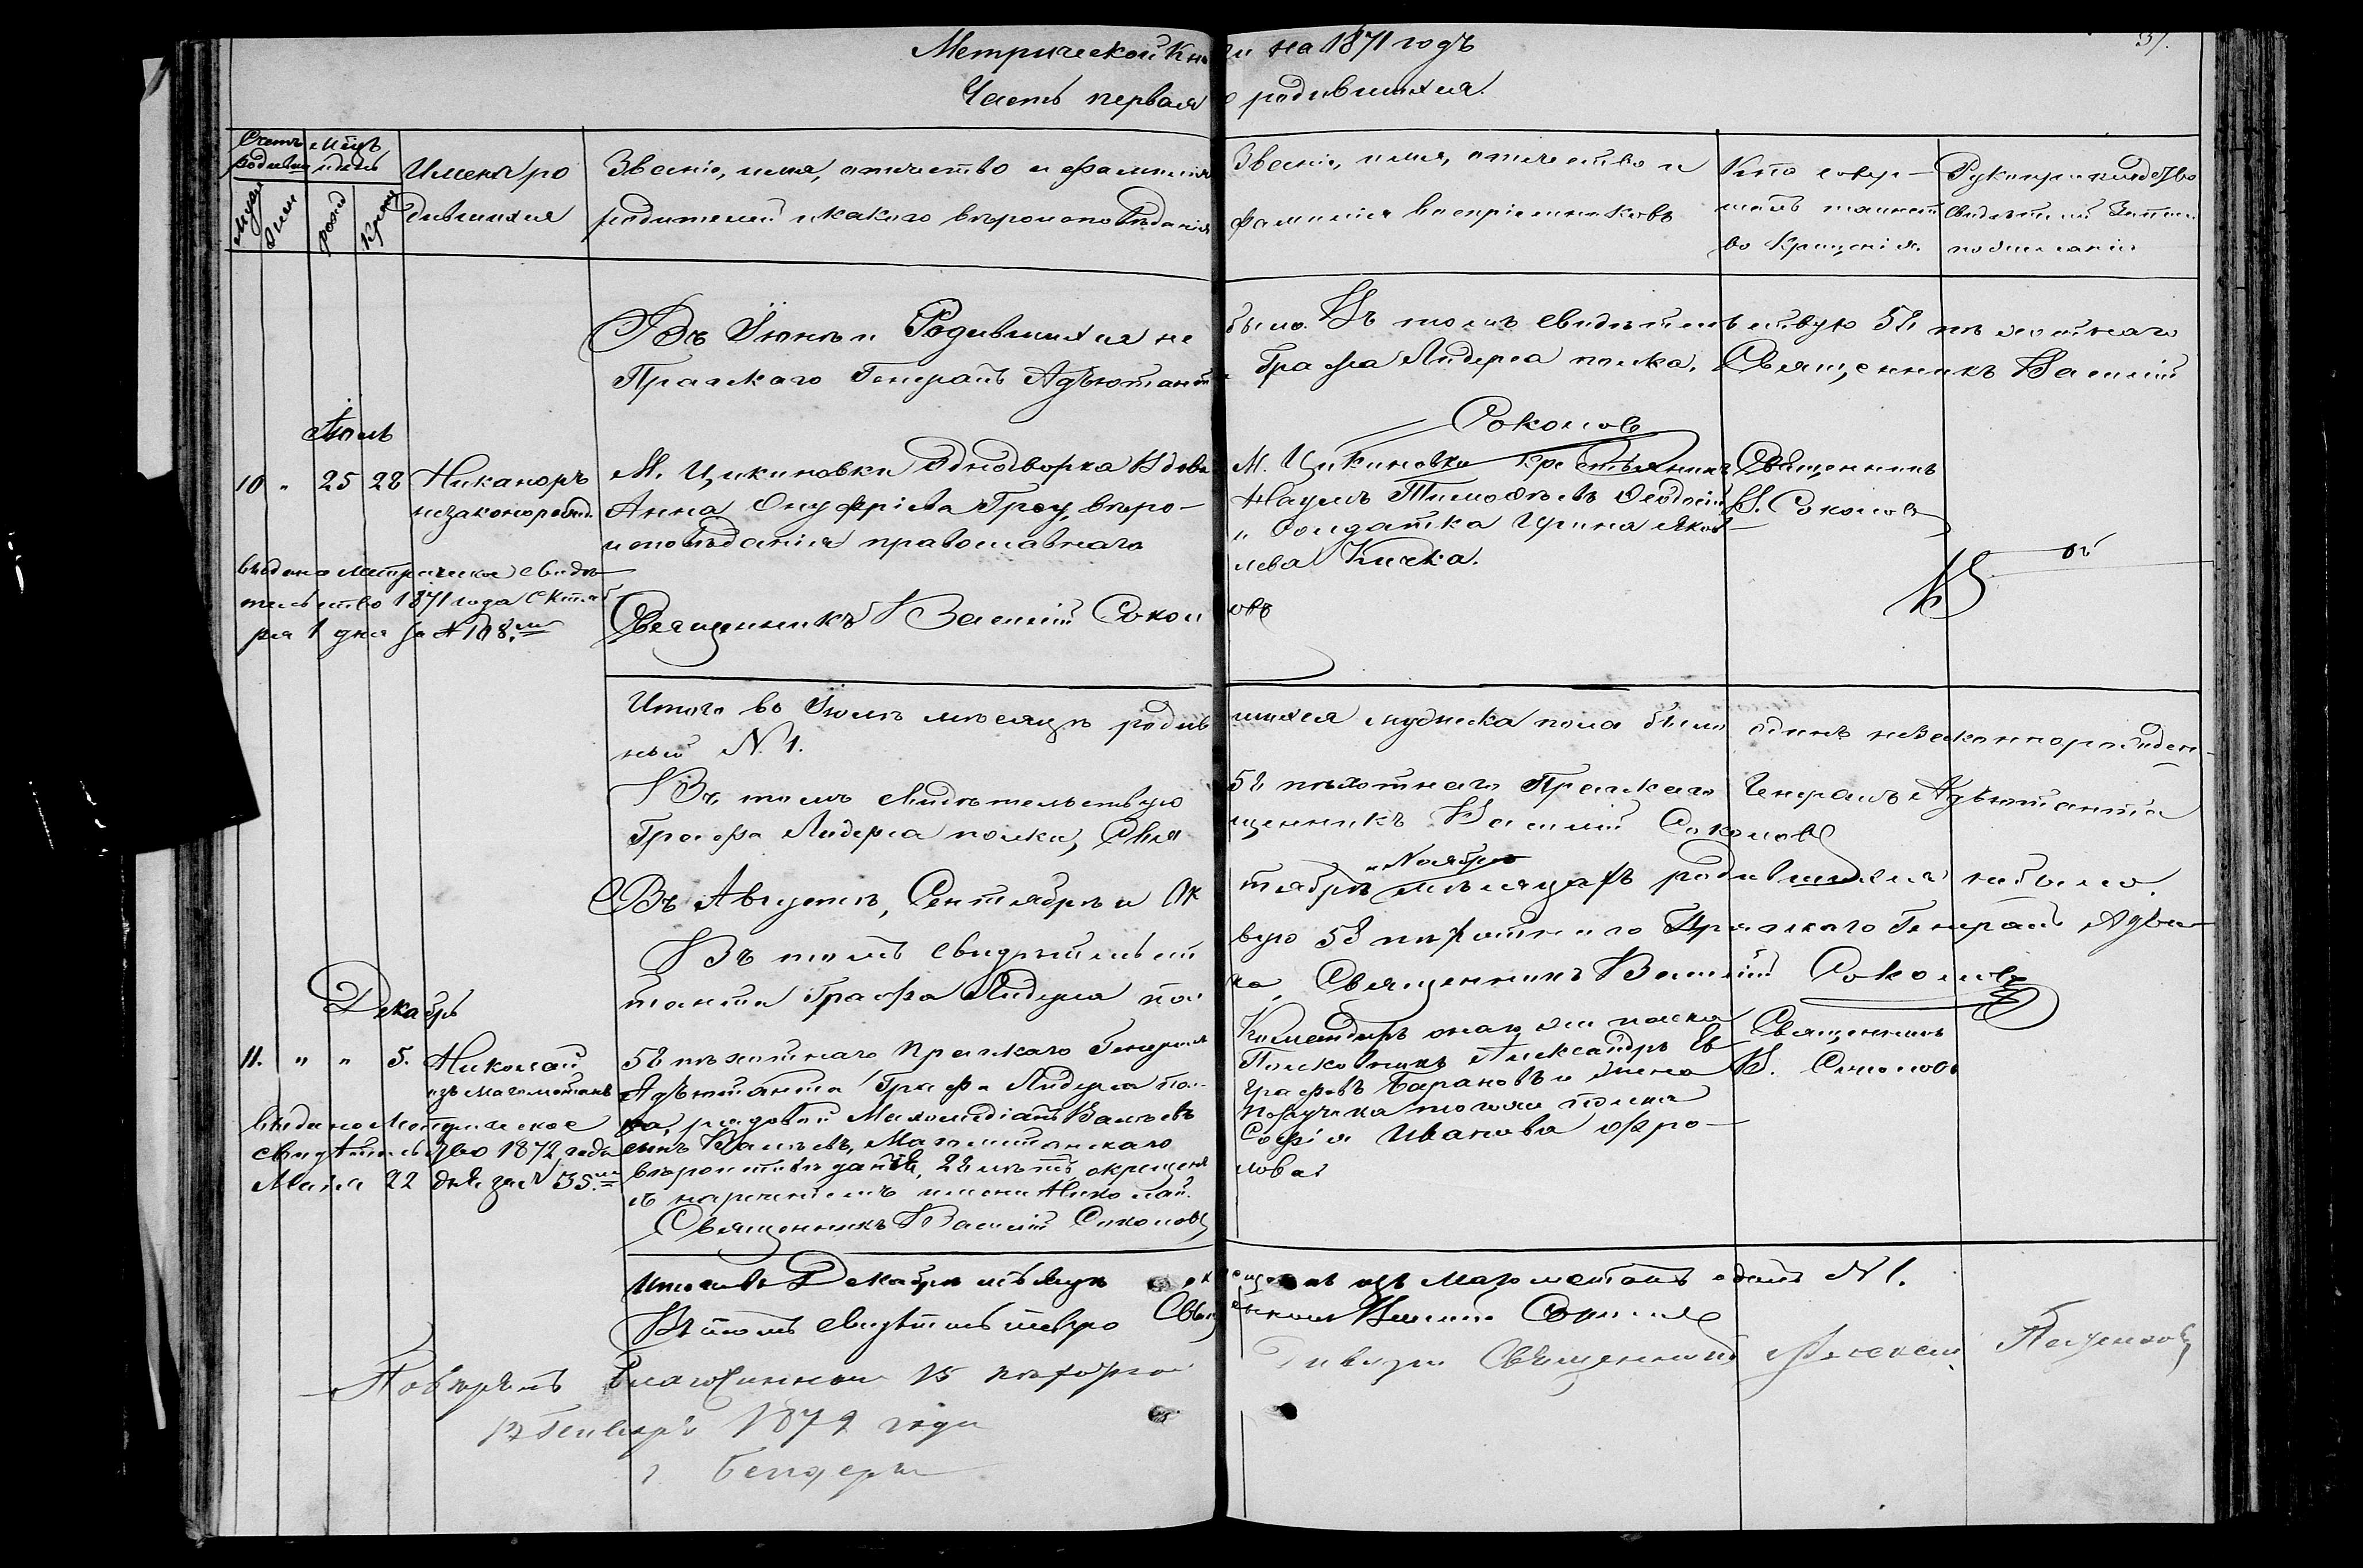 Метрической Книги на 1871 годъ
37.
Часть первая о родившихся.
Счетъ родивш
Мѣсяцъ и день
Муж
Жен
рожд
Крещ
Имена родившихся
Званіе, имя, отчество и фамилія
родителей и какого вѣроисповѣданія
Званіе, имя, отчество и
фамилія воспріемниковъ
Кто совер-
шалъ таинст
во Крещенія.
Рукоприкладство
свидѣтелей Записи
по желанію
Въ Іюнѣ Родившихся не было. Въ томъ свидѣтельствую 58 пѣхотнаго
Пражскаго Генералъ Адъютанта Графа Лидерса полка, Священникъ Василій
Соколовъ
Іюль
10 " 25 28 Никаноръ
незаконорожд.
М. Цикиновки Однодворка Вдова
Анна Онуфріева Гроу, вѣро-
исповѣданія православнаго
М. Цикиновки Крестьянинъ
Наумъ Тимофѣевъ Феодосій
и Солдатка Ирина Яков-
лева Кичка.
Священникъ
В. Соколовъ
выдано метрическое свидѣ-
тельство 1871 года Октяб
ря 1 дня за № 108.
Священникъ Василій Соколовъ
Итого въ Іюлѣ мѣсяцѣ родившихся мужеска пола былъ одинъ незаконнорожден-
ный № 1.
Въ томъ свидѣтельствую 58 пѣхотнаго Пражскаго Генералъ Адъютанта
Графа Лидерса полка, Священникъ Василій Соколовъ
и Ноябрѣ
Въ Августѣ, Сентябрѣ и Октябрѣ мѣсяцахъ родившихся небыло.
Въ томъ свидѣтельствую 58 пѣхотнаго Пражскаго Генералъ Адъю-
танта Графа Лидерса полка, Священникъ Василій Соколовъ
Декабрь
11. " " 5. Николай
изъ магометанъ
58 пѣхотнаго Пражскаго Генералъ
Адъютанта Графа Лидерса пол-
ка, рядовой
Магометанскаго
вѣроисповѣданія, 28 лѣтъ, окрещенъ
съ нареченіемъ имени Николай.
Священникъ Василій Соколовъ
Командиръ онаго же полка
Полковникъ Александръ Ев-
графовъ Барановъ и жена
Поручика того же полка
Софія Иванова
Священникъ
В. Соколовъ
выдано Метрическое
свидѣтельство 1872 года
Мая 22 дня за № 55.
Итого въ Декабрѣ мѣсяцѣ окрещенъ изъ магометанъ одинъ № 1.
Въ томъ свидѣтельствую Священникъ Василій Соколовъ
Повѣрялъ Благочинный 15 пѣхотной Дивизіи Священникъ Алексій
Генваря 1872 года
г. Бендеры